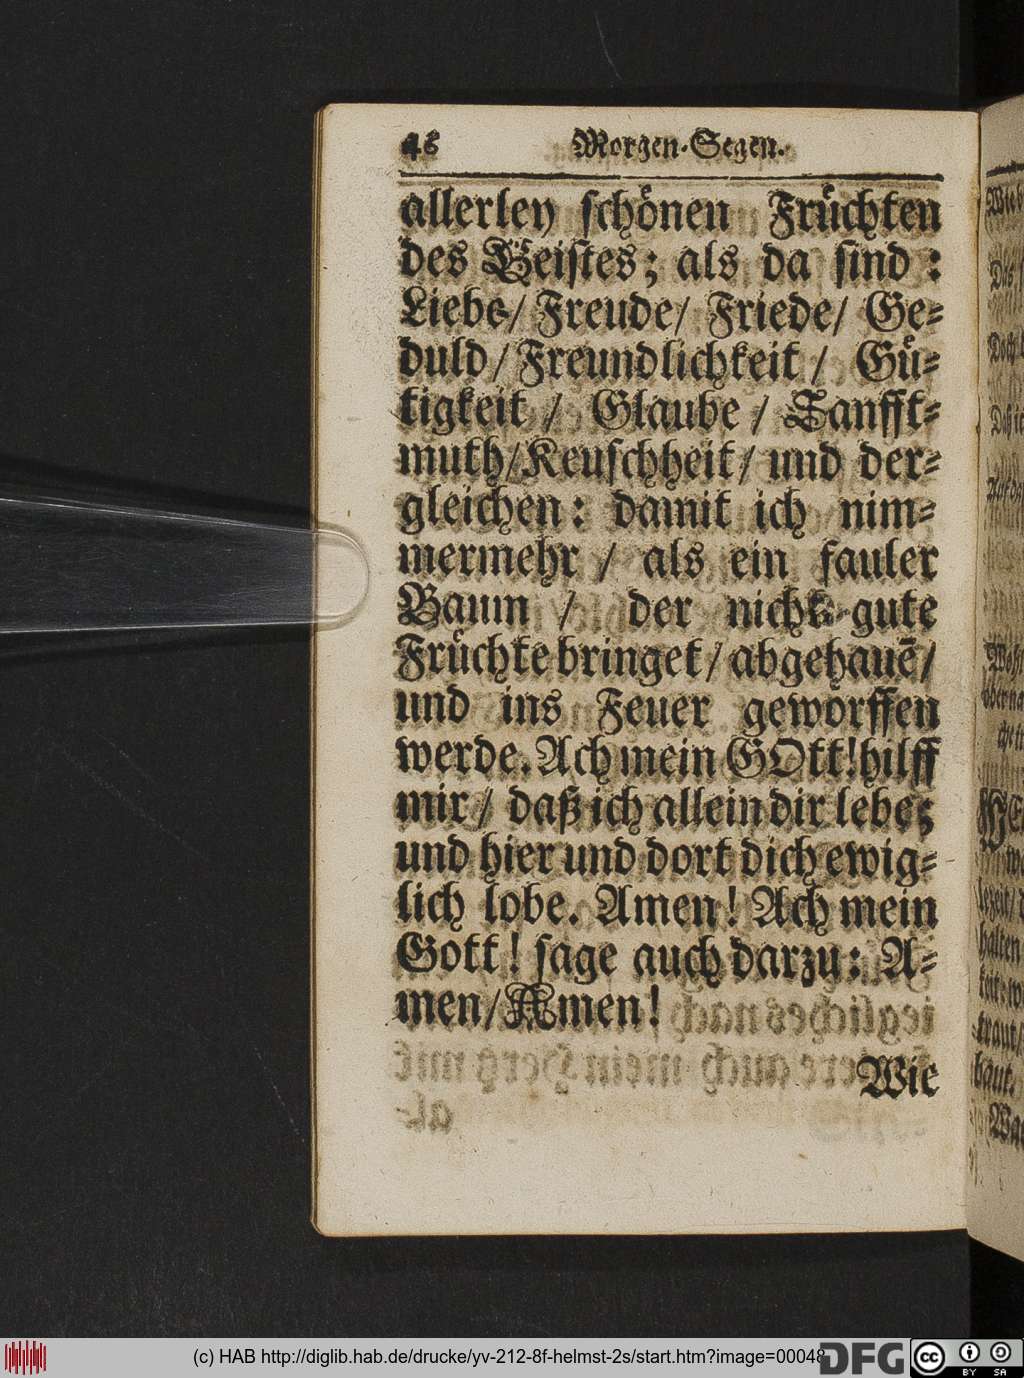 46 Morgen-Segen.
allerley schönen Früchten
des Geistes; als da sind :
Liebe/ Freude/ Friede/ Ge-
duld/ Freundlichkeit / Gü-
tigkeit / Glaube / Sanfft-
muth/Keuschheit/ und der-
gleichen: damit ich nim-
mermehr / als ein fauler
Baum / der nicht gute
Früchte bringet/ abgehauē/
und ins Feuer geworffen
werde. Ach mein GOtt! hilff
mir/ daß ich allein dir lebe;
und hier und dort dich ewig-
lich lobe. Amen! Ach mein
Gott! sage auch darzu: A-
men/Amen!
Wie
(c) HAB http://diglib.hab.de/drucke/yv-212-8f-helmst-2s/start.htm?image=00048
DFG
cc BY SA